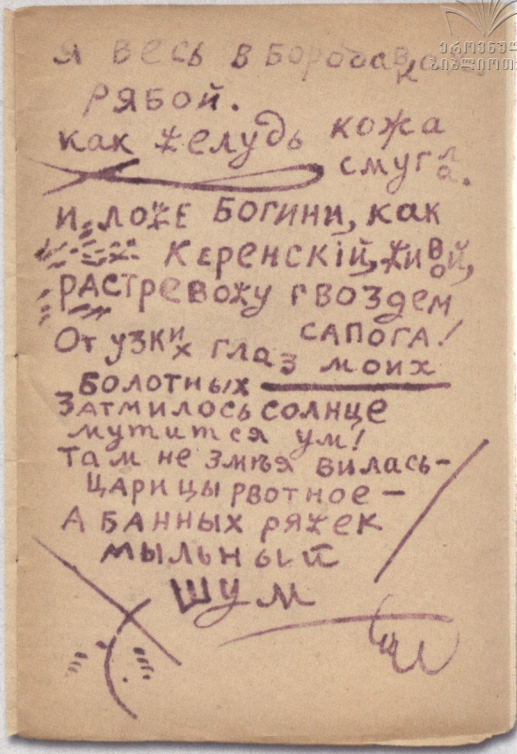 ეროვნულ
ბიბლიოთ
Я весь в бородавках
рябой.
как желудь кожа
смугла.
и ложе богини, как
Керенскій, живой,
растревожу гвоздем
сапога!
От узких глаз моих
болотных
затмилось солнце
мутится ум!
там не змѣя вилась—
царицы рвотное—
а банных ряжек
мыльный
шум